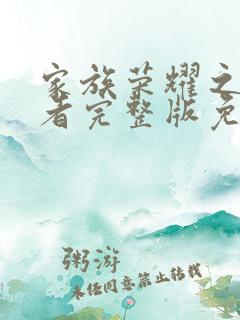 家族荣耀之
看完整版免
粥游
未经同意禁止转载